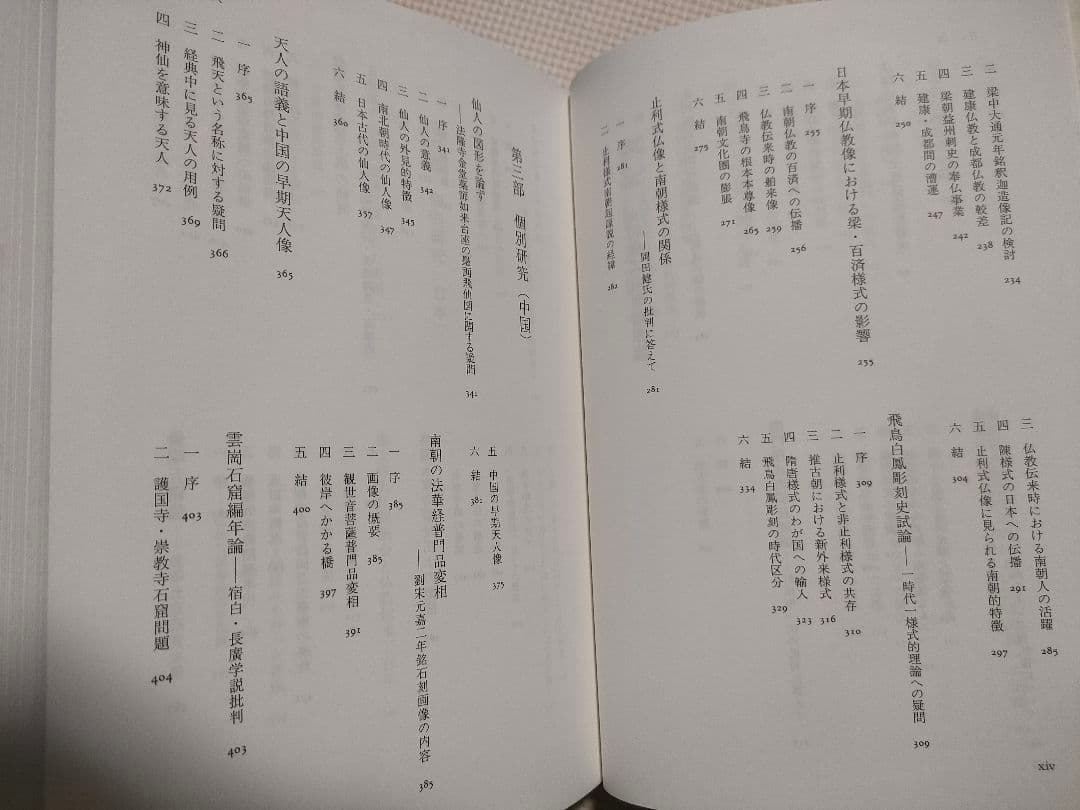 二 梁中大通元年銘釈迦造像記の検討 234
三 建康仏教と成都仏教の較差 238
四 梁朝益州刺史の奉仏事業 242
五 建康・成都間の漕運 247
六 結 250
日本早期仏教像における梁・百済様式の影響 255
一 序 255
二 南朝仏教の百済への伝播 256
三 仏教伝来時の舶来像 259
四 飛鳥寺の根本本尊像 265
五 南朝文化圏の膨脹 271
六 結 275
止利式仏像と南朝様式の関係
——岡田健氏の批判に答えて 281
一 序 281
二 止利式南朝起源説の経緯 282
三 仏教伝来時における南朝人の活躍 285
四 陳様式の日本への伝播 291
五 止利式仏像に見られる南朝的特徴 297
六 結 304
飛鳥白鳳彫刻史試論——一時代一様式的理論への疑問 309
一 序 309
二 止利様式と非止利様式の共存 310
三 推古朝における新外来様式 316
四 隋唐様式のわが国への輸入 323
五 飛鳥白鳳彫刻の時代区分 329
六 結 334
xiv
第三部 個別研究(中国)
仙人の図形を論ず
——法隆寺金堂薬師如来台座の壁画飛仙図に関する疑問 341
一 序 341
二 仙人の意義 342
三 仙人の外見的特徴 345
四 南北朝時代の仙人像 347
五 日本古代の仙人像 357
六 結 360
天人の語義と中国の早期天人像 365
一 序 365
二 飛天という名称に対する疑問 366
三 経典中に見る天人の用例 369
四 神仙を意味する天人 372
五 中国の早期天人像 375
六 結 382
南朝の法華経普門品変相
——劉宋元嘉二年銘石刻画像の内容 385
一 序 385
二 画像の概要 385
三 観世音菩薩普門品変相 391
四 彼岸へかかる橋 397
五 結 400
雲岡石窟編年論——宿白・長廣学説批判 403
一 序 403
二 護国寺・崇教寺石窟問題 404